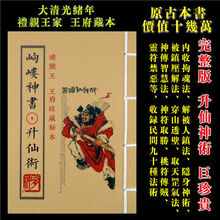 大清光绪年
禮親王家 王府藏本
原古本書
價值十幾萬
完整版 升仙神術 巨珍貴
內收拘魂法、解被人鎮法、隱身神術、
被鎮壓解法、穿山透壁、取天罡氣法
神傳智慧法、神符取勝、桃符
靈符禁惡等、收錄民間九十種法術
岣嶁神書·升仙術
禮親王
王府收藏秘本